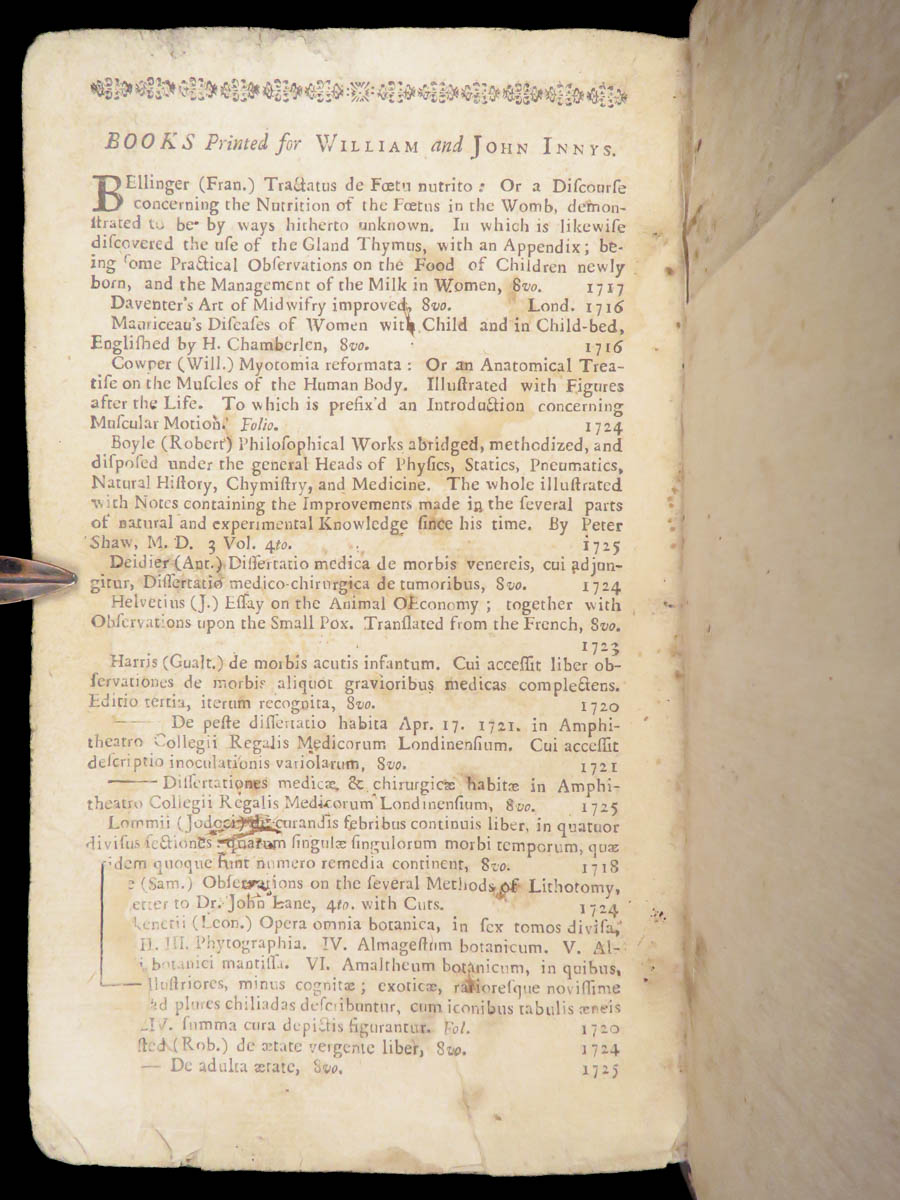 BOOKS Printed for WILLIAM and JOHN INNYS.
BEllinger (Fran.) Tractatus de Fœtu nutrito: Or a Diſcourſe
concerning the Nutrition of the Fœtus in the Womb, demon-
ſtrated to be by ways hitherto unknown. In which is likewiſe
diſcovered the uſe of the Gland Thymus, with an Appendix; be-
ing ſome Practical Obſervations on the Food of Children newly
born, and the Management of the Milk in Women, 8vo. 1717
Daventer's Art of Midwifry improved, 8vo. Lond. 1716
Mauriceau's Diſeaſes of Women with Child and in Child-bed,
Engliſhed by H. Chamberlen, 8vo. 1716
Cowper (Will.) Myotomia reformata: Or an Anatomical Trea-
tiſe on the Muſcles of the Human Body. Illuſtrated with Figures
after the Life. To which is prefix'd an Introduction concerning
Muſcular Motion. Folio. 1724
Boyle (Robert) Philoſophical Works abridged, methodized, and
diſpoſed under the general Heads of Phyſics, Statics, Pneumatics,
Natural Hiſtory, Chymiſtry, and Medicine. The whole illuſtrated
with Notes containing the Improvements made in the ſeveral parts
of natural and experimental Knowledge ſince his time. By Peter
Shaw, M. D. 3 Vol. 4to. 1725
Deidier (Ant.) Diſſertatio medica de morbis venereis, cui adjun-
gitur, Diſſertatio medico-chirurgica de tumoribus, 8vo. 1724
Helvetius (J.) Eſſay on the Animal OEconomy; together with
Obſervations upon the Small Pox. Tranſlated from the French, 8vo.
1723
Harris (Gualt.) de morbis acutis infantum. Cui acceſſit liber ob-
ſervationes de morbis aliquot gravioribus medicas complectens.
Editio tertia, iterum recognita, 8vo. 1720
—— De peſte diſſertatio habita Apr. 17. 1721. in Amphi-
theatro Collegii Regalis Medicorum Londinenſium. Cui acceſſit
deſcriptio inoculationis variolarum, 8vo. 1721
—— Diſſertationes medicæ, & chirurgicæ habitæ in Amphi-
theatro Collegii Regalis Medicorum Londinenſium, 8vo. 1725
Lommii (Jodoci) de curandis febribus continuis liber, in quatuor
diviſus ſectiones quarum ſingulæ ſingulorum morbi temporum, quæ
idem quoque ſunt numero remedia continent, 8vo. 1718
e (Sam.) Obſervations on the ſeveral Methods of Lithotomy,
etter to Dr. John Lane, 4to. with Cuts. 1724
kenetii (Leon.) Opera omnia botanica, in ſex tomos diviſa,
II. III. Phytographia. IV. Almageſtum botanicum. V. Al-
i botanici mantiſſa. VI. Amaltheum botanicum, in quibus,
lluſtriores, minus cognitæ; exoticæ, rarioreſque noviſſime
ad plures chiliadas deſcribuntur, cum iconibus tabulis æneis
LIV. ſumma cura depictis figurantur. Fol. 1720
ſted (Rob.) de ætate vergente liber, 8vo. 1724
— De adulta ætate, 8vo. 1725